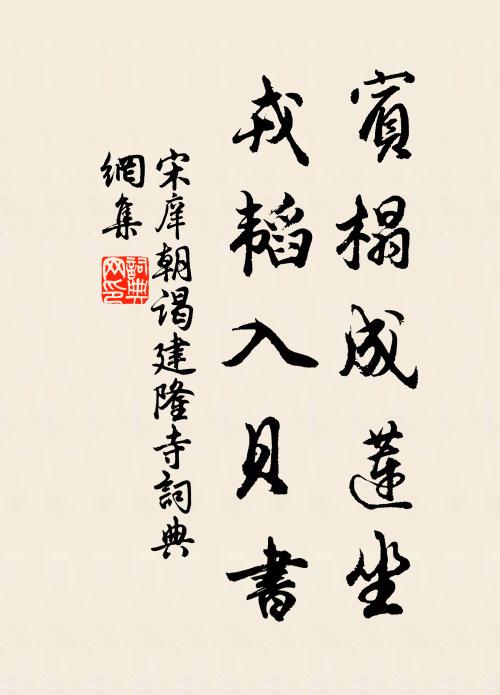 賓榻成蓮坐
戎韜入貝書
宋庠朝谒建隆寺詞典
網集
詞典網印